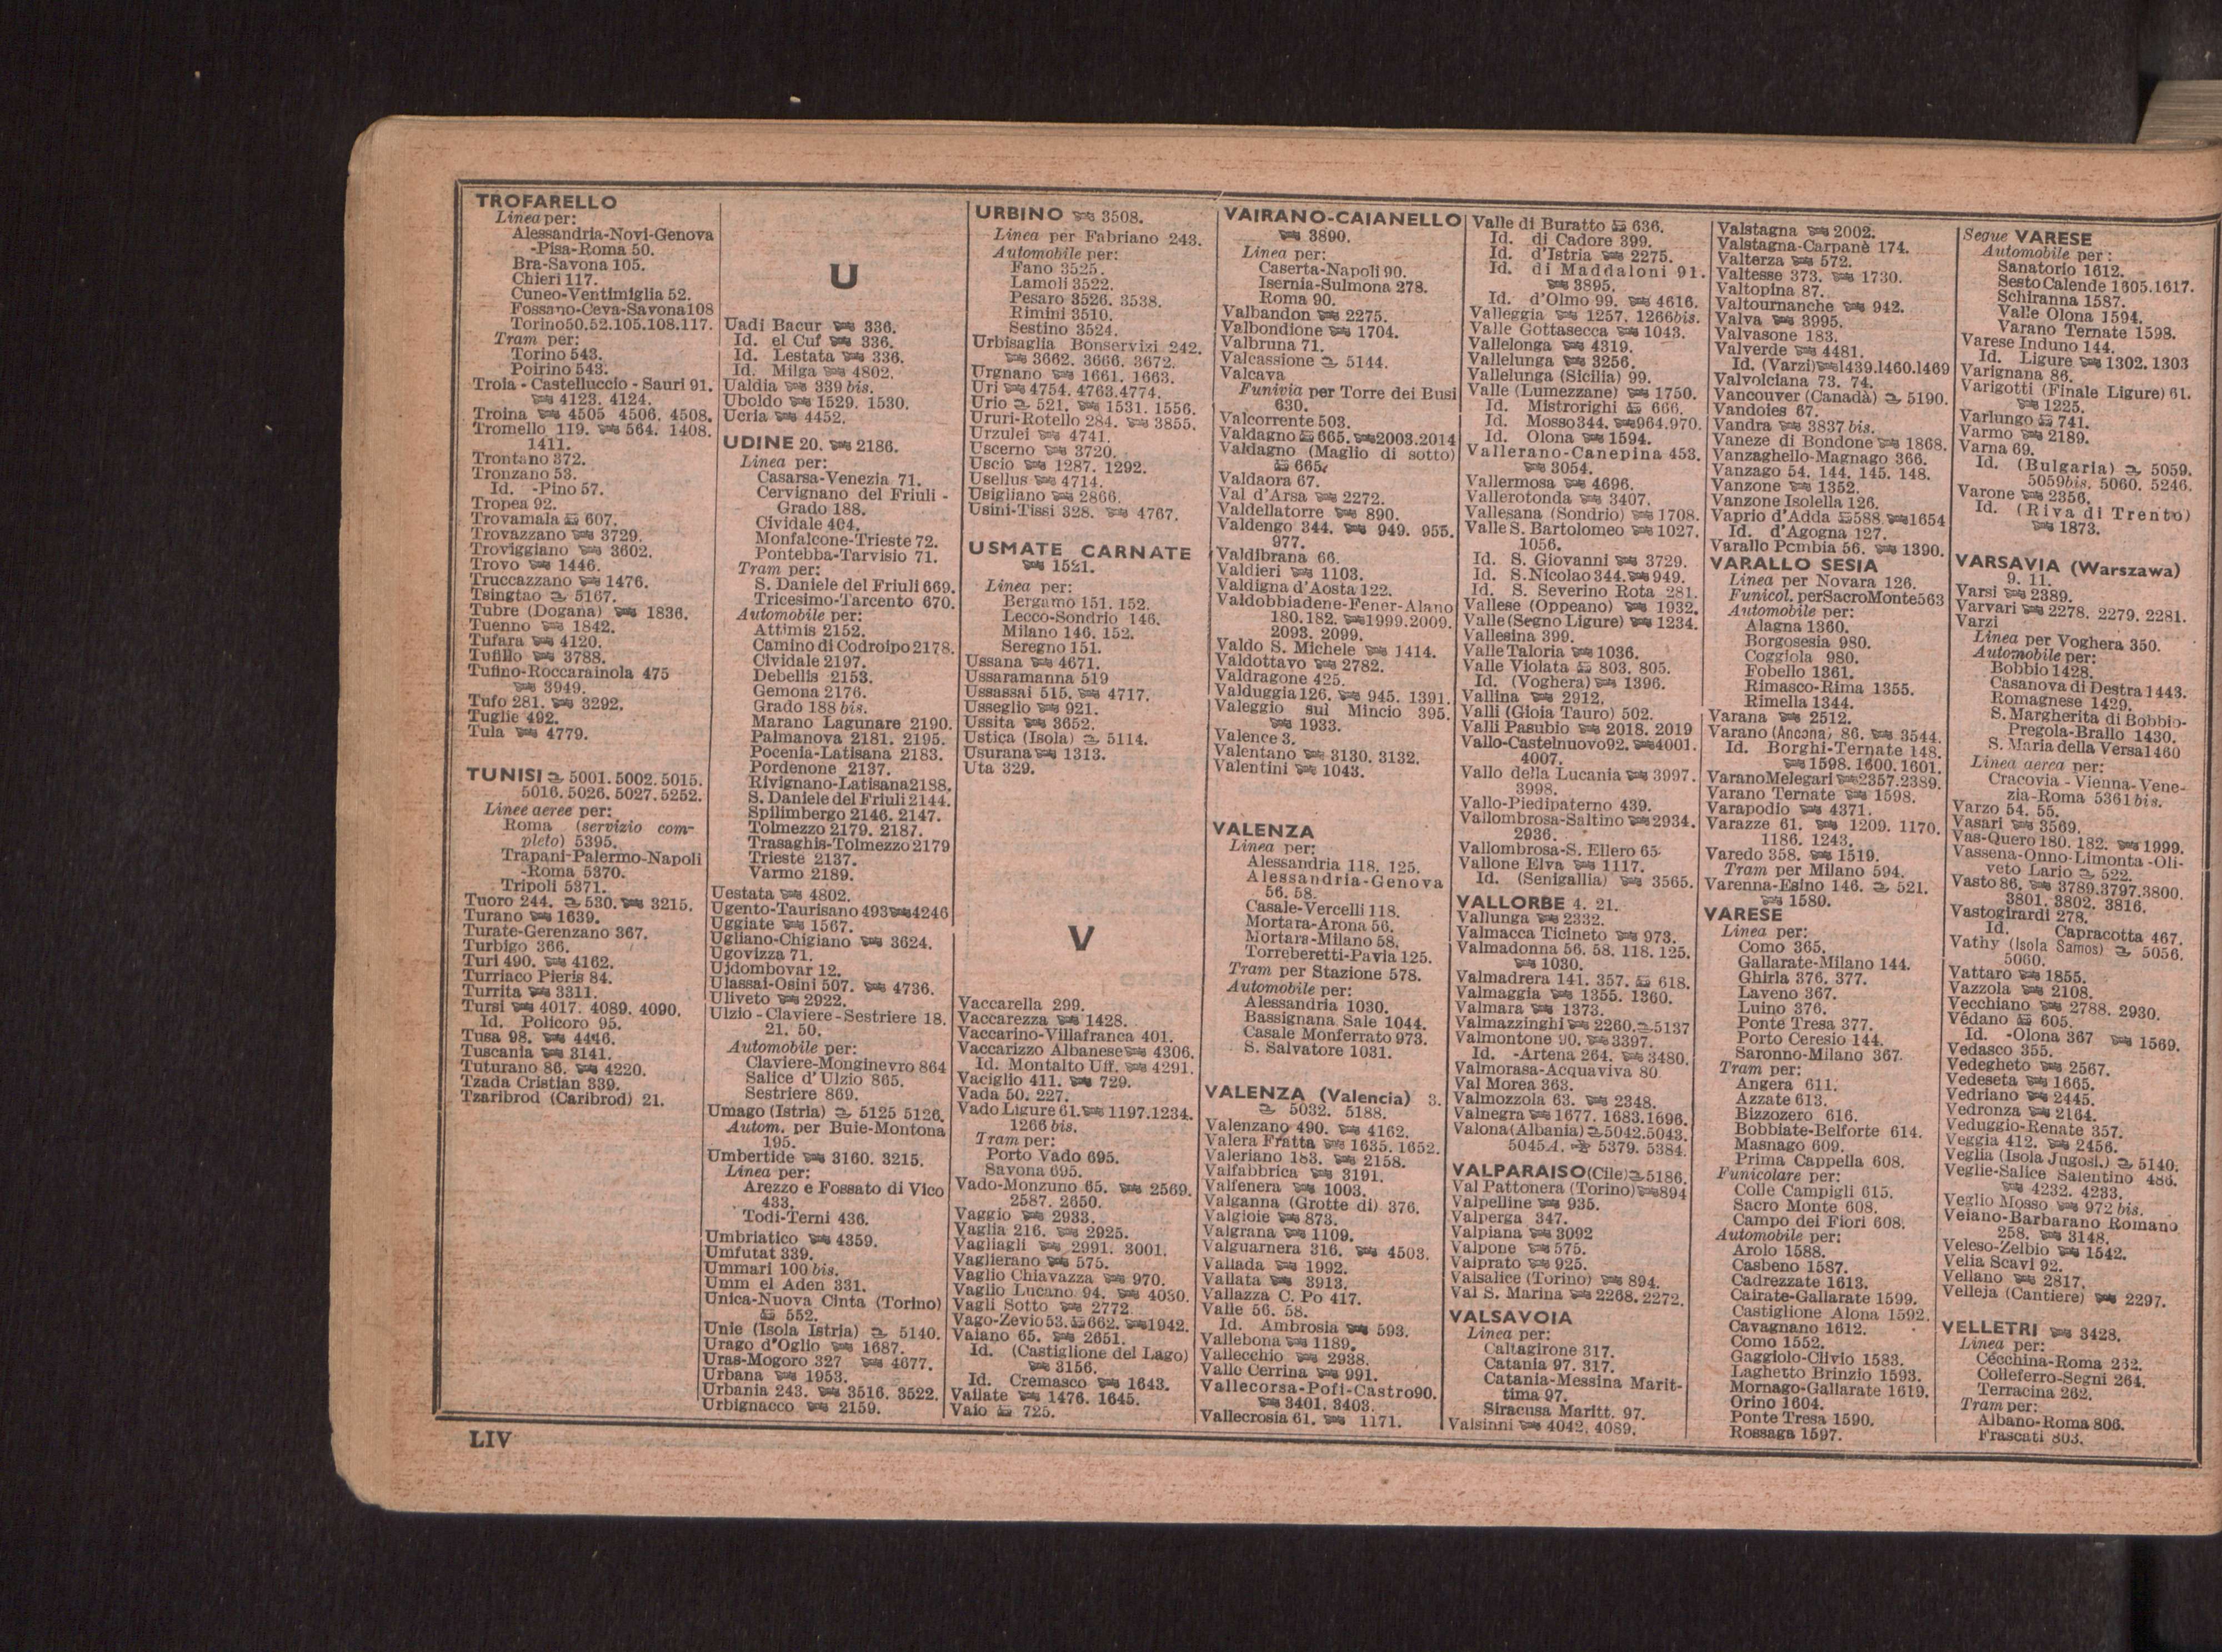 TROFARELLO
Linea per:
Alessandria-Novi-Genova
-Pisa-Roma 50.
Bra-Savona 105.
Chieri 117.
Cuneo-Ventimiglia 52.
Fossano-Ceva-Savona 108
Torino 50.52.105.108.117.
Tram per:
Torino 543.
Poirino 543.
Troia - Castelluccio - Sauri 91.
4123. 4124.
Troina 4505 4506. 4508.
Tromello 119. 564. 1408.
1411.
Trontano 372.
Tronzano 53.
Id. -Pino 57.
Tropea 92.
Trovamala 607.
Trovazzano 3729.
Troviggiano 3602.
Trovo 1446.
Truccazzano 1476.
Tsingtao 5167.
Tubre (Dogana) 1836.
Tuenno 1842.
Tufara 4120.
Tufillo 3788.
Tufino-Roccarainola 475
3949.
Tufo 281. 3292.
Tuglie 492.
Tula 4779.
TUNISI 5001. 5002. 5015.
5016. 5026. 5027. 5252.
Linee aeree per:
Roma (servizio com-
pleto) 5395.
Trapani-Palermo-Napoli
-Roma 5370.
Tripoli 5371.
Tuoro 244. 530. 3215.
Turano 1639.
Turate-Gerenzano 367.
Turbigo 366.
Turi 490. 4162.
Turriaco Pieris 84.
Turrita 3311.
Tursi 4017. 4089. 4090.
Id. Policoro 95.
Tusa 98. 4446.
Tuscania 3141.
Tuturano 86. 4220.
Tzada Cristian 339.
Tzaribrod (Caribrod) 21.
U
Uadi Bacur 336.
Id. el Cuf 336.
Id. Lestata 336.
Id. Milga 4802.
Ualdia 339 bis.
Uboldo 1529. 1530.
Ucria 4452.
UDINE 20. 2186.
Linea per:
Casarsa-Venezia 71.
Cervignano del Friuli -
Grado 188.
Cividale 404.
Monfalcone-Trieste 72.
Pontebba-Tarvisio 71.
Tram per:
S. Daniele del Friuli 669.
Tricesimo-Tarcento 670.
Automobile per:
Attimis 2152.
Camino di Codroipo 2178.
Cividale 2197.
Debellis 2153.
Gemona 2176.
Grado 188 bis.
Marano Lagunare 2190.
Palmanova 2181. 2195.
Pocenia-Latisana 2183.
Pordenone 2137.
Rivignano-Latisana 2188.
S. Daniele del Friuli 2144.
Spilimbergo 2146. 2147.
Tolmezzo 2179. 2187.
Trasaghis-Tolmezzo 2179
Trieste 2137.
Varmo 2189.
Uestata 4802.
Ugento-Taurisano 493 4246
Uggiate 1567.
Ugliano-Chigiano 3624.
Ugovizza 71.
Ujdombovar 12.
Ulassai-Osini 507. 4736.
Uliveto 2922.
Ulzio - Claviere - Sestriere 18.
21. 50.
Automobile per:
Claviere-Monginevro 864
Salice d'Ulzio 865.
Sestriere 869.
Umago (Istria) 5125 5126.
Autom. per Buie-Montona
195.
Umbertide 3160. 3215.
Linea per:
Arezzo e Fossato di Vico
433.
Todi-Terni 436.
Umbriatico 4359.
Umfutat 339.
Ummari 100 bis.
Umm el Aden 331.
Unica-Nuova Cinta (Torino)
552.
Unie (Isola Istria) 5140.
Urago d'Oglio 1687.
Uras-Mogoro 327 4677.
Urbana 1953.
Urbania 243. 3516. 3522.
Urbignacco 2159.
URBINO 3508.
Linea per Fabriano 243.
Automobile per:
Fano 3525.
Lamoli 3522.
Pesaro 3526. 3538.
Rimini 3510.
Sestino 3524.
Urbisaglia Bonservizi 242.
3662. 3666. 3672.
Urgnano 1661. 1663.
Uri 4754. 4763.4774.
Urio 521. 1531. 1556.
Ururi-Rotello 284. 3855.
Urzulei 4741.
Uscerno 3720.
Uscio 1287. 1292.
Usellus 4714.
Usigliano 2866.
Usini-Tissi 328. 4767.
USMATE CARNATE
1521.
Linea per:
Bergamo 151. 152.
Lecco-Sondrio 146.
Milano 146. 152.
Seregno 151.
Ussana 4671.
Ussaramanna 519
Ussassai 515. 4717.
Usseglio 921.
Ussita 3652.
Ustica (Isola) 5114.
Usurana 1313.
Uta 329.
V
Vaccarella 299.
Vaccarezza 1428.
Vaccarino-Villafranca 401.
Vaccarizzo Albanese 4306.
Id. Montalto Uff. 4291.
Vaciglio 411. 729.
Vada 50. 227.
Vado Ligure 61. 1197.1234.
1266 bis.
Tram per:
Porto Vado 695.
Savona 695.
Vado-Monzuno 65. 2569.
2587. 2650.
Vaggio 2933.
Vaglia 216. 2925.
Vagliagli 2991. 3001.
Vaglierano 575.
Vaglio Chiavazza 970.
Vaglio Lucano 94. 4030.
Vagli Sotto 2772
Vago-Zevio 53. 662. 1942.
Vaiano 65. 2651.
Id. (Castiglione del Lago)
3156.
Id. Cremasco 1643.
Vailate 1476. 1645.
Vaio 725.
VAIRANO-CAIANELLO
3890.
Linea per:
Caserta-Napoli 90.
Isernia-Sulmona 278.
Roma 90.
Valbandon 2275.
Valbondione 1704.
Valbruna 71.
Valcassione 5144.
Valcava
Funivia per Torre dei Busi
630.
Valcorrente 503.
Valdagno 665. 2003.2014
Valdagno (Maglio di sotto)
665.
Valdaora 67.
Val d'Arsa 2272.
Valdellatorre 890.
Valdengo 344. 949. 955.
977.
Valdibrana 66.
Valdieri 1103.
Valdigna d'Aosta 122.
Valdobbiadene-Fener-Alano
180.182. 1999.2009.
2093. 2099.
Valdo S. Michele 1414.
Valdottavo 2782.
Valdragone 425.
Valduggia 126. 945. 1391.
Valeggio sul Mincio 395.
1933.
Valence 3.
Valentano 3130. 3132.
Valentini 1043.
VALENZA
Linea per:
Alessandria 118. 125.
Alessandria-Genova
56. 58.
Casale-Vercelli 118.
Mortara-Arona 56.
Mortara-Milano 58.
Torreberetti-Pavia 125.
Tram per Stazione 578.
Automobile per:
Alessandria 1030.
Bassignana Sale 1044.
Casale Monferrato 973.
S. Salvatore 1031.
VALENZA (Valencia) 3.
5032. 5188.
Valenzano 490. 4162.
Valera Fratta 1635. 1652.
Valeriano 183. 2158.
Valfabbrica 3191.
Valfenera 1003.
Valganna (Grotte di) 376.
Valgioie 873.
Valgrana 1109.
Valguarnera 316. 4503.
Vallada 1992.
Vallata 3913.
Vallazza C. Po 417.
Valle 56. 58.
Id. Ambrosia 593.
Vallebona 1189.
Vallecchio 2938.
Valle Cerrina 991.
Vallecorsa-Pofi-Castro 90.
3401. 3403.
Vallecrosia 61. 1171.
Valle di Buratto 636.
Id. di Cadore 399.
Id. d'Istria 2275.
Id. di Maddaloni 91.
3895.
Id. d'Olmo 99. 4616.
Valleggia 1257. 1266bis.
Valle Gottasecca 1043.
Vallelonga 4319.
Vallelunga 3256.
Vallelunga (Sicilia) 99.
Valle (Lumezzane) 1750.
Id. Mistrorighi 666.
Id. Mosso 344. 964.970.
Id. Olona 1594.
Vallerano-Canepina 453.
3054.
Vallermosa 4696.
Vallerotonda 3407.
Vallesana (Sondrio) 1708.
Valle S. Bartolomeo 1027.
1056.
Id. S. Giovanni 3729.
Id. S. Nicolao 344. 949.
Id. S. Severino Rota 281.
Vallese (Oppeano) 1932.
Valle (Segno Ligure) 1234.
Vallesina 399.
Valle Taloria 1036.
Valle Violata 803. 805.
Id. (Voghera) 1396.
Vallina 2912.
Valli (Gioia Tauro) 502.
Valli Pasubio 2018. 2019
Vallo-Castelnuovo 92. 4001.
4007.
Vallo della Lucania 3997.
3998.
Vallo-Piedipaterno 439.
Vallombrosa-Saltino 2934.
2936.
Vallombrosa-S. Ellero 65
Vallone Elva 1117.
Id. (Senigallia) 3565.
VALLORBE 4. 21.
Vallunga 2332.
Valmacca Ticineto 973.
Valmadonna 56. 58. 118. 125.
1030.
Valmadrera 141. 357. 618.
Valmaggia 1355. 1360.
Valmara 1373.
Valmazzinghi 2260. 5137
Valmontone 90. 3397.
Id. -Artena 264. 3480.
Valmorasa-Acquaviva 80.
Val Morea 363.
Valmozzola 63. 2348.
Valnegra 1677. 1683.1696.
Valona (Albania) 5042.5043.
5045A. 5379. 5384.
VALPARAISO (Cile) 5186.
Val Pattonera (Torino) 894
Valpelline 935.
Valperga 347.
Valpiana 3092
Valpone 575.
Valprato 925.
Valsalice (Torino) 894.
Val S. Marina 2268. 2272.
VALSAVOIA
Linea per:
Caltagirone 317.
Catania 97. 317.
Catania-Messina Marit-
tima 97.
Siracusa Maritt. 97.
Valsinni 4042. 4089.
Valstagna 2002.
Valstagna-Carpanè 174.
Valterza 572.
Valtesse 373. 1730.
Valtopina 87.
Valtournanche 942.
Valva 3995.
Valvasone 183.
Valverde 4481.
Id. (Varzi) 1439.1460.1469
Valvolciana 73. 74.
Vancouver (Canadà) 5190.
Vandoies 67.
Vandra 3837 bis.
Vaneze di Bondone 1868.
Vanzaghello-Magnago 366.
Vanzago 54. 144. 145. 148.
Vanzone 1352.
Vanzone Isolella 126.
Vaprio d'Adda 588. 1654
Id. d'Agogna 127.
Varallo Pombia 56. 1390.
VARALLO SESIA
Linea per Novara 126.
Funicol. per Sacro Monte 563
Automobile per:
Alagna 1360.
Borgosesia 980.
Coggiola 980.
Fobello 1361.
Rimasco-Rima 1355.
Rimella 1344.
Varana 2512.
Varano (Ancona) 86. 3544.
Id. Borghi-Ternate 148.
1598. 1600. 1601.
Varano Melegari 2357.2389.
Varano Ternate 1598.
Varapodio 4371.
Varazze 61. 1209. 1170.
1186. 1243.
Varedo 358. 1519.
Tram per Milano 594.
Varenna-Esino 146. 521.
1580.
VARESE
Linea per:
Como 365.
Gallarate-Milano 144.
Ghirla 376. 377.
Laveno 367.
Luino 376.
Ponte Tresa 377.
Porto Ceresio 144.
Saronno-Milano 367.
Tram per:
Angera 611.
Azzate 613.
Bizzozero 616.
Bobbiate-Belforte 614.
Masnago 609.
Prima Cappella 608.
Funicolare per:
Colle Campigli 615.
Sacro Monte 608.
Campo dei Fiori 608.
Automobile per:
Arolo 1588.
Casbeno 1587.
Cadrezzate 1613.
Cairate-Gallarate 1599.
Castiglione Alona 1592.
Cavagnano 1612.
Como 1552.
Gaggiolo-Clivio 1583.
Laghetto Brinzio 1593.
Mornago-Gallarate 1619.
Orino 1604.
Ponte Tresa 1590.
Rossaga 1597.
Segue VARESE
Automobile per:
Sanatorio 1612.
Sesto Calende 1605.1617.
Schiranna 1587.
Valle Olona 1594.
Varano Ternate 1598.
Varese Induno 144.
Id. Ligure 1302. 1303
Varignana 86.
Varigotti (Finale Ligure) 61.
1225.
Varlungo 741.
Varmo 2189.
Varna 69.
Id. (Bulgaria) 5059.
5059bis. 5060. 5246.
Varone 2356.
Id. (Riva di Trento)
1873.
VARSAVIA (Warszawa)
9. 11.
Varsi 2389.
Varvari 2278. 2279. 2281.
Varzi
Linea per Voghera 350.
Automobile per:
Bobbio 1428.
Casanova di Destra 1443.
Romagnese 1429.
S. Margherita di Bobbio-
Pregola-Brallo 1430.
S. Maria della Versa 1460
Linea aerea per:
Cracovia - Vienna-Vene-
zia-Roma 5361 bis.
Varzo 54. 55.
Vasari 3569.
Vas-Quero 180. 182. 1999.
Vassena-Onno-Limonta-Oli-
veto Lario 522.
Vasto 86. 3789.3797.3800.
3801. 3802. 3816.
Vastogirardi 278.
Id. Capracotta 467.
Vathy (Isola Samos) 5056.
5060.
Vattaro 1855.
Vazzola 2108.
Vecchiano 2788. 2930.
Vedano 605.
Id. -Olona 367 1569.
Vedasco 355.
Vedegheto 2567.
Vedeseta 1665.
Vedriano 2445.
Vedronza 2164.
Veduggio-Renate 357.
Veggia 412. 2456.
Veglia (Isola Jugosl.) 5140.
Veglie-Salice Salentino 486.
4232. 4233.
Veglio Mosso 972 bis.
Veiano-Barbarano Romano
258. 3148.
Veleso-Zelbio 1542.
Velia Scavi 92.
Vellano 2817.
Velleja (Cantiere) 2297.
VELLETRI 3428.
Linea per:
Cecchina-Roma 262.
Colleferro-Segni 264.
Terracina 262.
Tram per:
Albano-Roma 806.
Frascati 803.
LIV